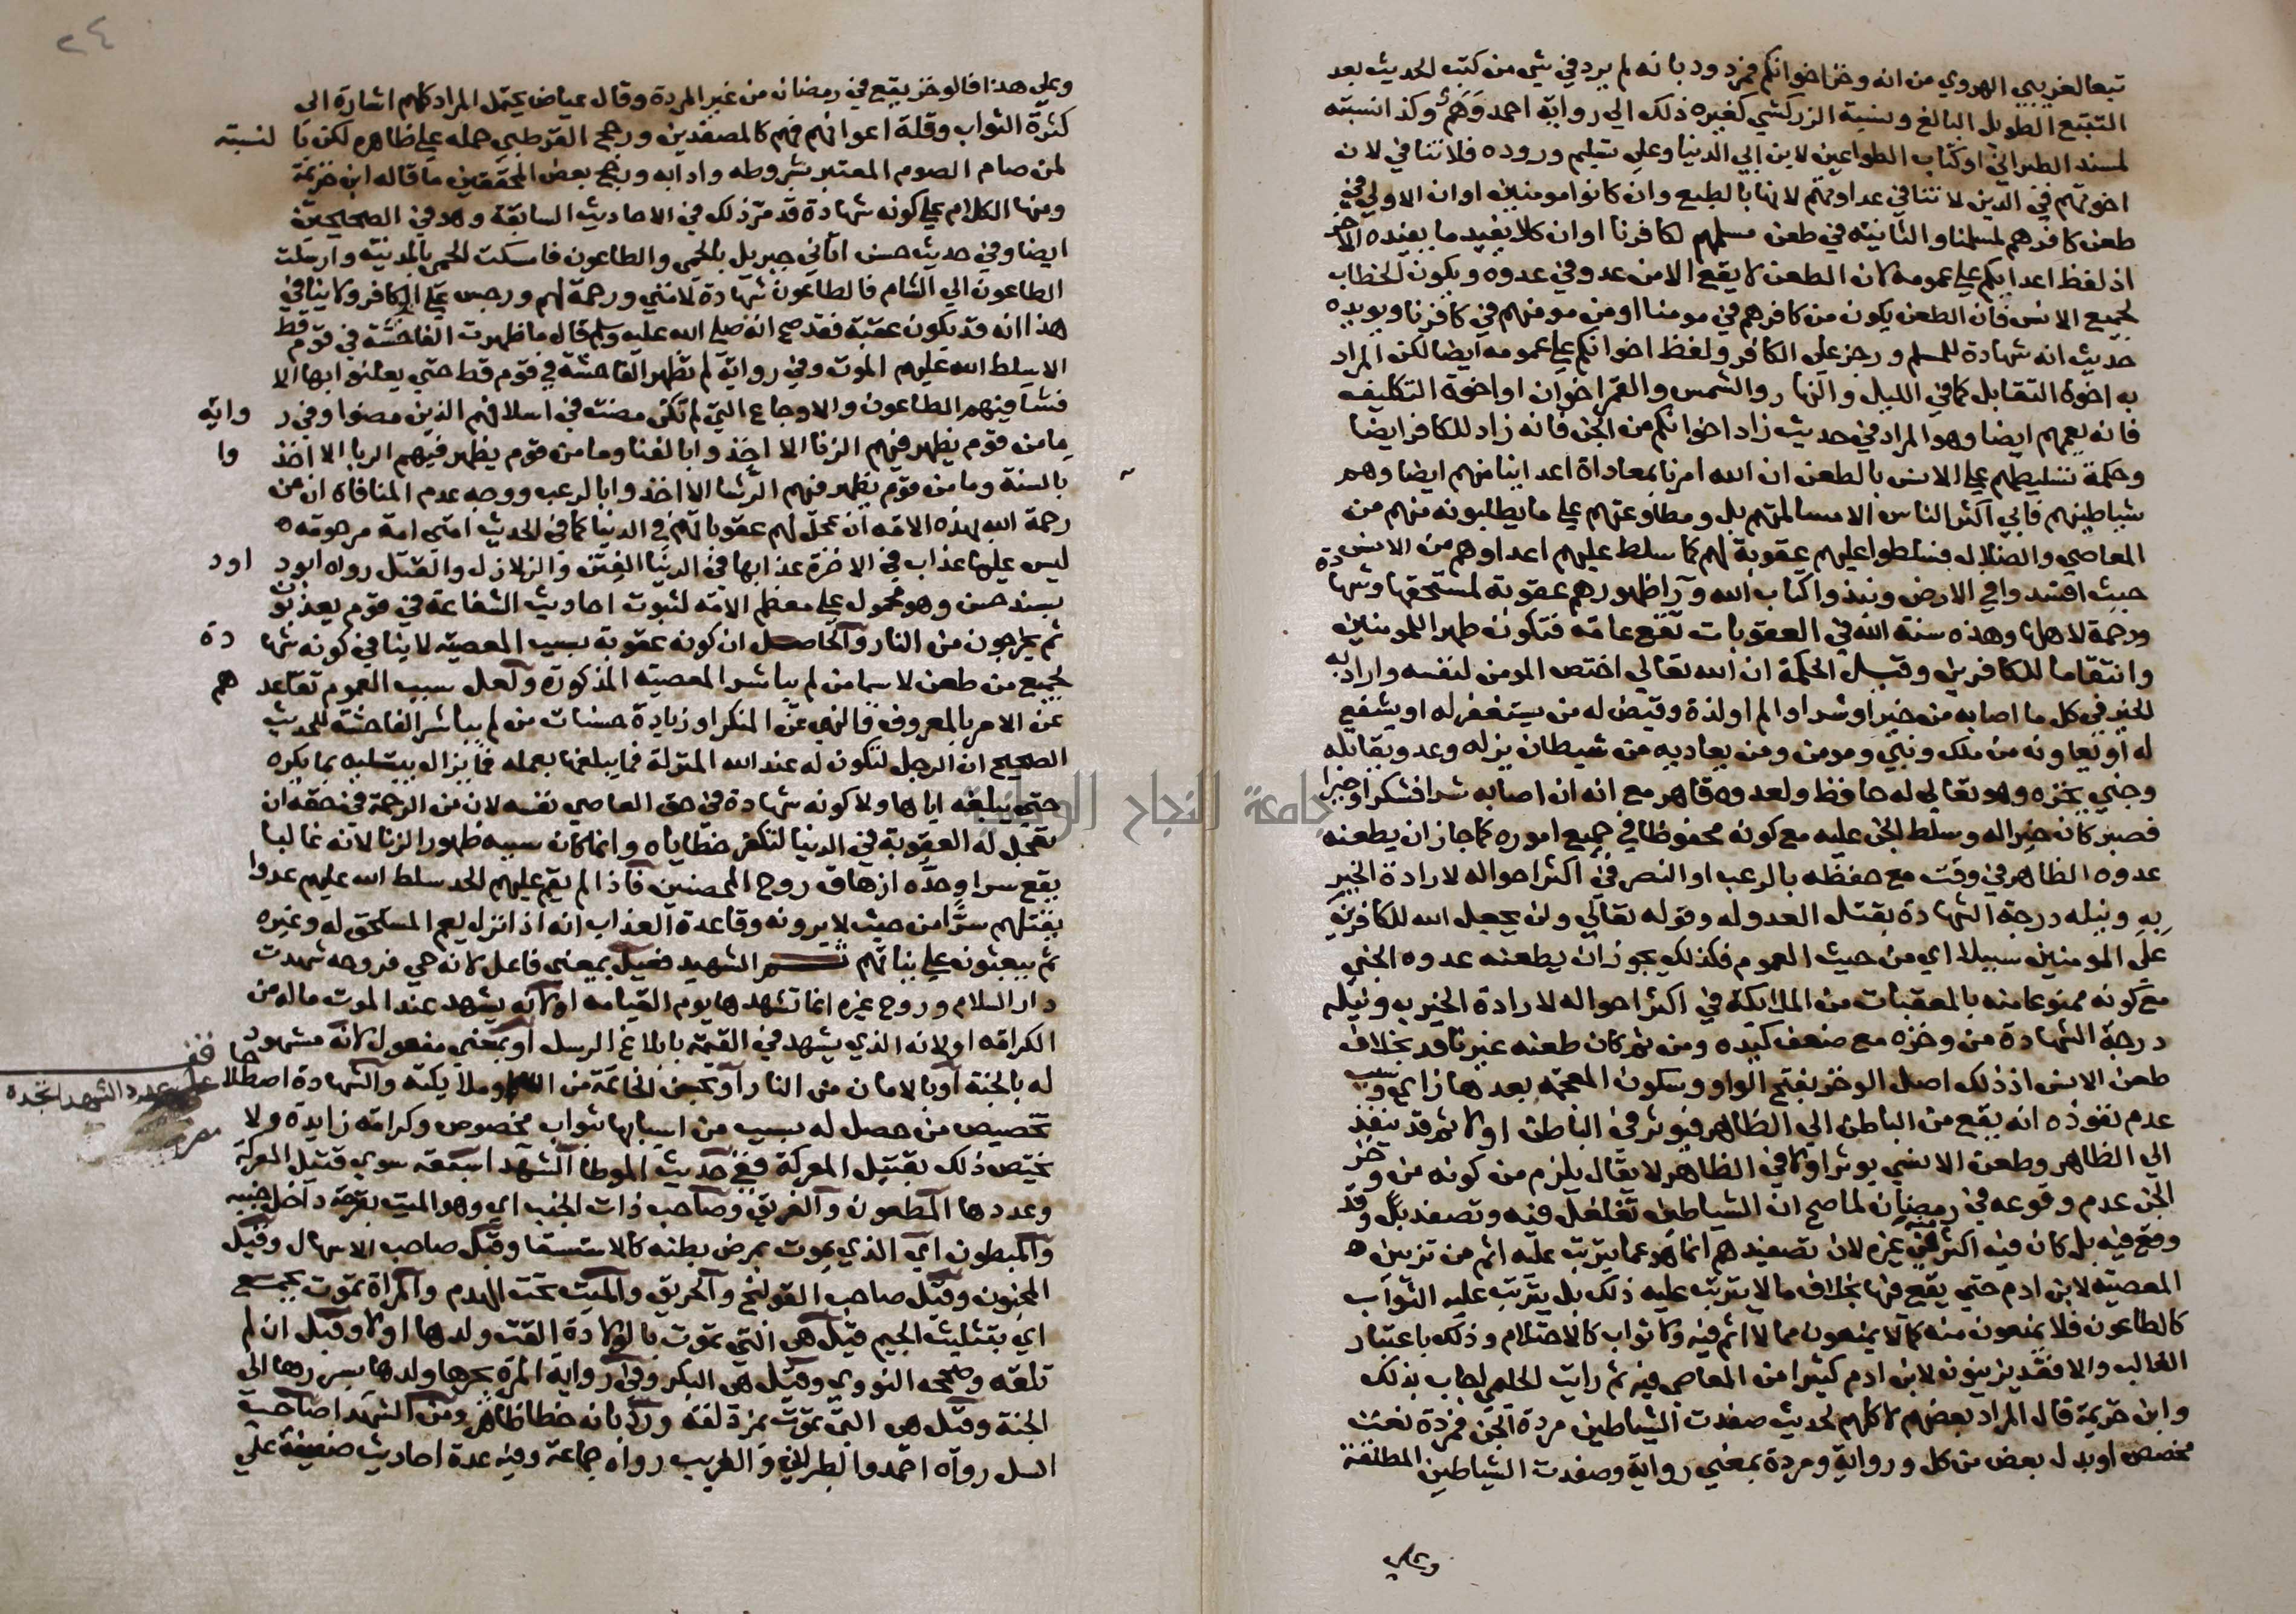 تبعا لغريبي الهروي من انه وخز اخوانكم فمردود بانه لم يرد في شي من كتب الحديث بعد
التتبع الطويل البالغ ونسبة الزركشي كغيره ذلك الي رواية احمد وهم وكذا نسبته
لمسند الطبراني او كتاب الطواعين لابن ابي الدنيا وعلي تسليم وروده فلا تنافي لان
اخوتهم في الدين لا تنافي عداوتهم لانها بالطبع وان كانوا مومنين او ان الاولي في
طعن كافرهم لمسلمنا والثانية في طعن مسلمهم لكافرنا او ان كلا يفيد ما يفيده الاخر
اذ لفظ اعدايكم علي عمومه لان الطعن لا يقع الا من عدو في عدوه ويكون الخطاب
لجميع الانس فان الطعن يكون من كافرهم في مومنا او من مومنهم في كافرنا ويويده
حديث انه شهادة للمسلم ورجز علي الكافر ولفظ اخوانكم علي عمومه ايضا لكن المراد
به اخوة التقابل كما في الليل والنهار والشمس والقمر اخوان او اخوة التكليف
فانه يعمهم ايضا وهو المراد في حديث زاد اخوانكم من الجن فانه زاد للكافر ايضا
وحكمة تسليطهم علي الانس بالطعن ان الله امرنا بمعاداة اعداينا منهم ايضا وهم
شياطينهم فابي اكثر الناس الا مسالمتهم بل ومطاوعتهم علي ما يطلبونه منهم من
المعاصي والضلاله فسلطوا عليهم عقوبة لهم كما سلط عليهم اعداوهم من الانس
حيث افسدوا في الارض ونبذوا كتاب الله ورا ظهورهم عقوبة لمستحقها وشهادة
ورحمة لاهلها وهذه سنة الله في العقوبات تقع عامة فتكون طهرا للمومنين
وانتقاما للكافرين وقيل الحكمة ان الله تعالي اختص المومن لنفسه واراد به
الخير في كل ما اصابه من خير او شر او الم او لذة وقيض له من يستغفر له او يشفع
له او يعاونه من ملك ونبي ومومن ومن يعاديه من شيطان يزله وعدو يقاتله
وجني يخزه وهو تعالي له حافظ ولعدوه قاهر مع انه ان اصابه شرا فشكر او خيرا
فصبر كان خيرا له وسلط الجن عليه مع كونه محفوظا في جميع اموره كما جاز ان يطعنه
عدوه الظاهر في وقت مع حفظه بالرعب او النصر في اكثر احواله لارادة الخير
به ونيله درجة الشهادة بقتل العدو له وقوله تعالي ولن يجعل الله للكافرين
علي المومنين سبيلا اي من حيث العموم فكذلك يجوز ان يطعنه عدوه الجني
مع كونه ممنوعا منه بالمعقبات من الملايكة في اكثر احواله لارادة الخير به ونيله
درجة الشهادة من وخزه مع ضعف كيده ومن ثم كان طعنه غير نافد بخلاف
طعن الانس اذ ذلك اصل الوخز بفتح الواو وسكون المعجمه بعدها زاي وسبب
عدم نفوذه انه يقع من الباطن الي الظاهر فيوثر في الباطن اولا ثم قد ينفذ
الي الظاهر وطعن الانسي يوثر اولا في الظاهر لا يقال يلزم من كونه من وخز
الجن عدم وقوعه في رمضان لما صح ان الشياطين تغلغل فيه وتصفد بل وقد
وقع فيه بل كان فيه اكثر من غيره لان تصفيدهم انما هو عما يترتب عليه اثم من تزيين
المعصية لابن ادم حتي يقع فيها بخلاف ما لا يترتب عليه ذلك بل يترتب عليه الثواب
كالطاعون فلا يمنعون منه كما لا يمنعون مما لا اثم فيه ولا ثواب كالاحتلام وذلك باعتبار
الغالب والا فقد يزينون لابن ادم كثيرا من المعاصي فيه ثم رايت الحلمي اجاب بذلك
وابن خزيمة قال المراد بعضهم لا كلهم لحديث صفدت الشياطين مردة الجن فمردة نعت
مخصص او بدل بعض من كل ورواية ومردة بمعني رواية وصفدت الشياطين المطلقة
وعلي
٢٤
وعلي هذا فالوخز يقع في رمضان من غير المردة وقال عياض يحتمل المراد كلهم اشارة الي
كثرة الثواب وقلة اعوانهم فهم كالمصفدين ورجح القرطبي حمله علي ظاهره لكن با لنسبة
لمن صام الصوم المعتبر بشروطه وادابه ورجح بعض المحققين ما قاله ابن خزيمة
ومنها الكلام علي كونه شهادة قد مر ذلك في الاحاديث السابقة وهو في الصحيحين
ايضا وفي حديث حسن اتاني جبريل بالحمي والطاعون فامسكت الحمي بالمدينة وارسلت
الطاعون الي الشام فالطاعون شهادة لامتي ورحمة لهم ورجس علي الكافر ولا ينافي
هذا انه قد يكون عقبة فقد صح انه صلي الله عليه وسلم قال ما ظهرت الفاحشة في قوم قط
الا سلط الله عليهم الموت وفي رواية لم تظهر الفاحشة في قوم قط حتي يعلنوا بها الا
فشا فيهم الطاعون والاوجاع التي لم تكن مضت في اسلافهم الذين مضوا وفي ر واية
ما من قوم يظهر فيهم الزنا الا اخذوا بالفنا وما من قوم يظهر فيهم الربا الا اخذ وا
بالسنة وما من قوم يظهر فيهم الرشا الا اخذوا بالرعب ووجه عدم المنافاة ان من
رحمة الله لهذه الامه ان عجل لهم عقوباتهم في الدنيا كما في الحديث امتي امة مرحومه
ليس عليها عذاب في الاخرة عذابها في الدنيا الفتن والزلازل والقتل رواه ابود اود
بسند حسن وهو محمول علي معظم الامه لثبوت احاديث الشفاعة في قوم يعذبون
ثم يخرجون من النار والحاصل ان كونه عقوبة بسبب المعصيه لا ينافي كونه شها دة
لجميع من طعن لا سيما من لم يباشر المعصيه المذكورة ولعل سبب العموم تقاعد هم
عن الامر بالمعروف والنهي عن المنكر او زيادة حسنات من لم يباشر الفاحشة للحديث
الصحيح ان الرجل لتكون له عند الله المنزلة فما يبلغها بعمله فما يزال يبتليه بما يكره
حتي يبلغه اياها ولا كونه شهادة في حق العاصي نفسه لان من الرحمة في حقه ان
تعجل له العقوبة في الدنيا لتكفر خطاياه وانما كان سببه ظهور الزنا لانه غالبا
يقع سرا وحده ازهاق روح المحصنين فاذا لم يقم عليهم الحد سلط الله عليهم عدوا
يقتلهم سرا من حيث لا يرونه وقاعدة العذاب انه اذا نزل يعم المستحق له وغيره
ثم يبعثون علي نياتهم ثم الشهيد فعيل بمعني فاعل لانه حي فروحه شهدت
دار السلام وروح غيره انما تشهدها يوم القيامه او لانه يشهد عند الموت ماله من
الكرامه او لانه الذي يشهد في القيمة بابلاغ الرسل او بمعني مفعول لانه مشهود
له بالجنة او بالامان من النار او بحسن الخاتمة من الله وملايكته والشهادة اصطلاحا
تخصيص من حصل له بسبب من اسبابها بثواب مخصوص وكرامه زايدة ولا
يختص ذلك بقتيل المعركة ففي حديث الموطا الشهدا سبعة سوي قتيل المعركة
وعددها المطعون والغريق وصاحب ذات الجنب اي وهو الميت بقرحة داخل جنبيه
والمبطون اي الذي يموت بمرض بطنه كالاستسقا وقيل صاحب الاسهال وقيل
المجنون وقيل صاحب القولنج والحريق والميت تحت الهدم والمراة تموت بجمع
اي بتثليث الجيم قيل هي التي تموت بالولادة القت ولدها اولا وقيل ان لم
تلقه وصححه النووي وقيل هي البكر وفي رواية المرة يجرها ولدها بسررها الي
الجنة وقيل هي التي تموت بمزدلفة ورد بانه خطا ظاهر ومن الشهدا صاحب
السل رواه احمد والطبراني والغريب رواه جماعة وفيه عدة احاديث ضعيفة علي
عدد الشهدا
جامعة النجاح الوطنية